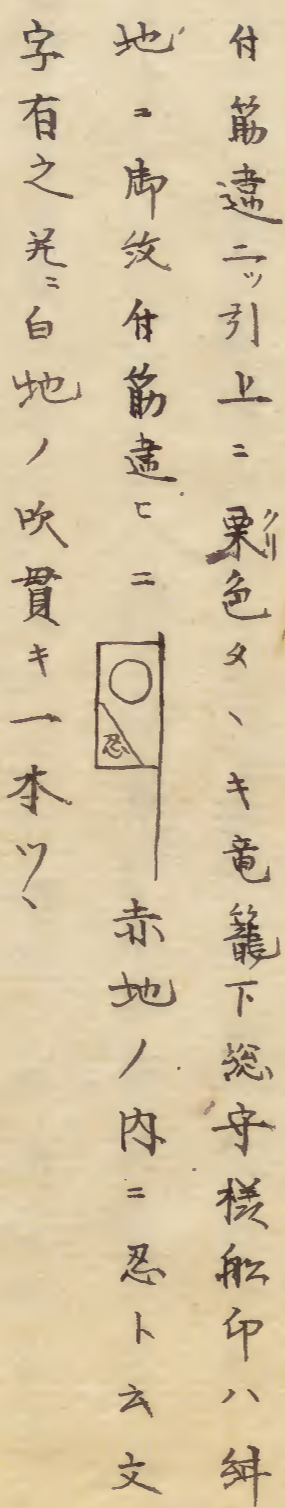 付筋違二ツ引上ニ栗色タヽキ竜籠下総守様船印ハ紺
クリ
地ニ御紋付筋違ヒニ 赤地ノ内ニ忍ト云文
忍
字有之並ニ白地ノ吹貫キ一本ツヽ